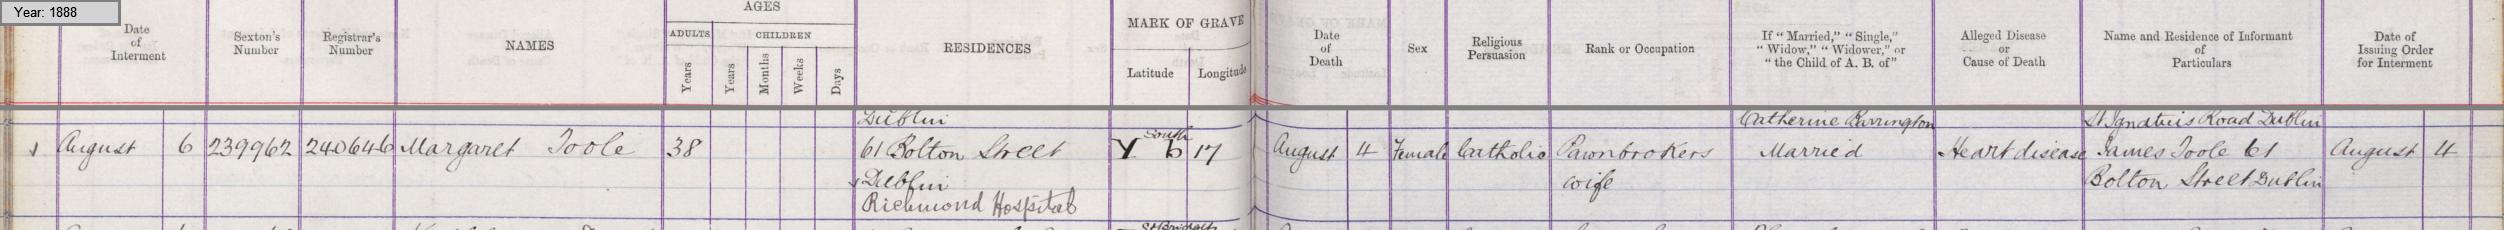 Year: 1888
Date of Interment
Sexton's Number
Registrar's Number
NAMES
AGES
ADULTS
CHILDREN
Years
Years
Months
Weeks
Days
RESIDENCES
MARK OF GRAVE
Latitude
Longitude
Date of Death
Sex
Religious Persuasion
Rank or Occupation
If "Married," "Single,"
"Widow," "Widower," or
"the Child of A. B. of"
Alleged Disease
or
Cause of Death
Name and Residence of Informant
of
Particulars
Date of
Issuing Order
for Interment
Dublin
Catherine Barrington
St Ignatius Road Dublin
August 6 239962 240646 Margaret Toole 38 61 Bolton Street Y South b 17 August 4 Female Catholic Pawnbrokers Married Heart disease James Toole 61 August 4
Dublin wife Bolton Street Dublin
Richmond Hospital